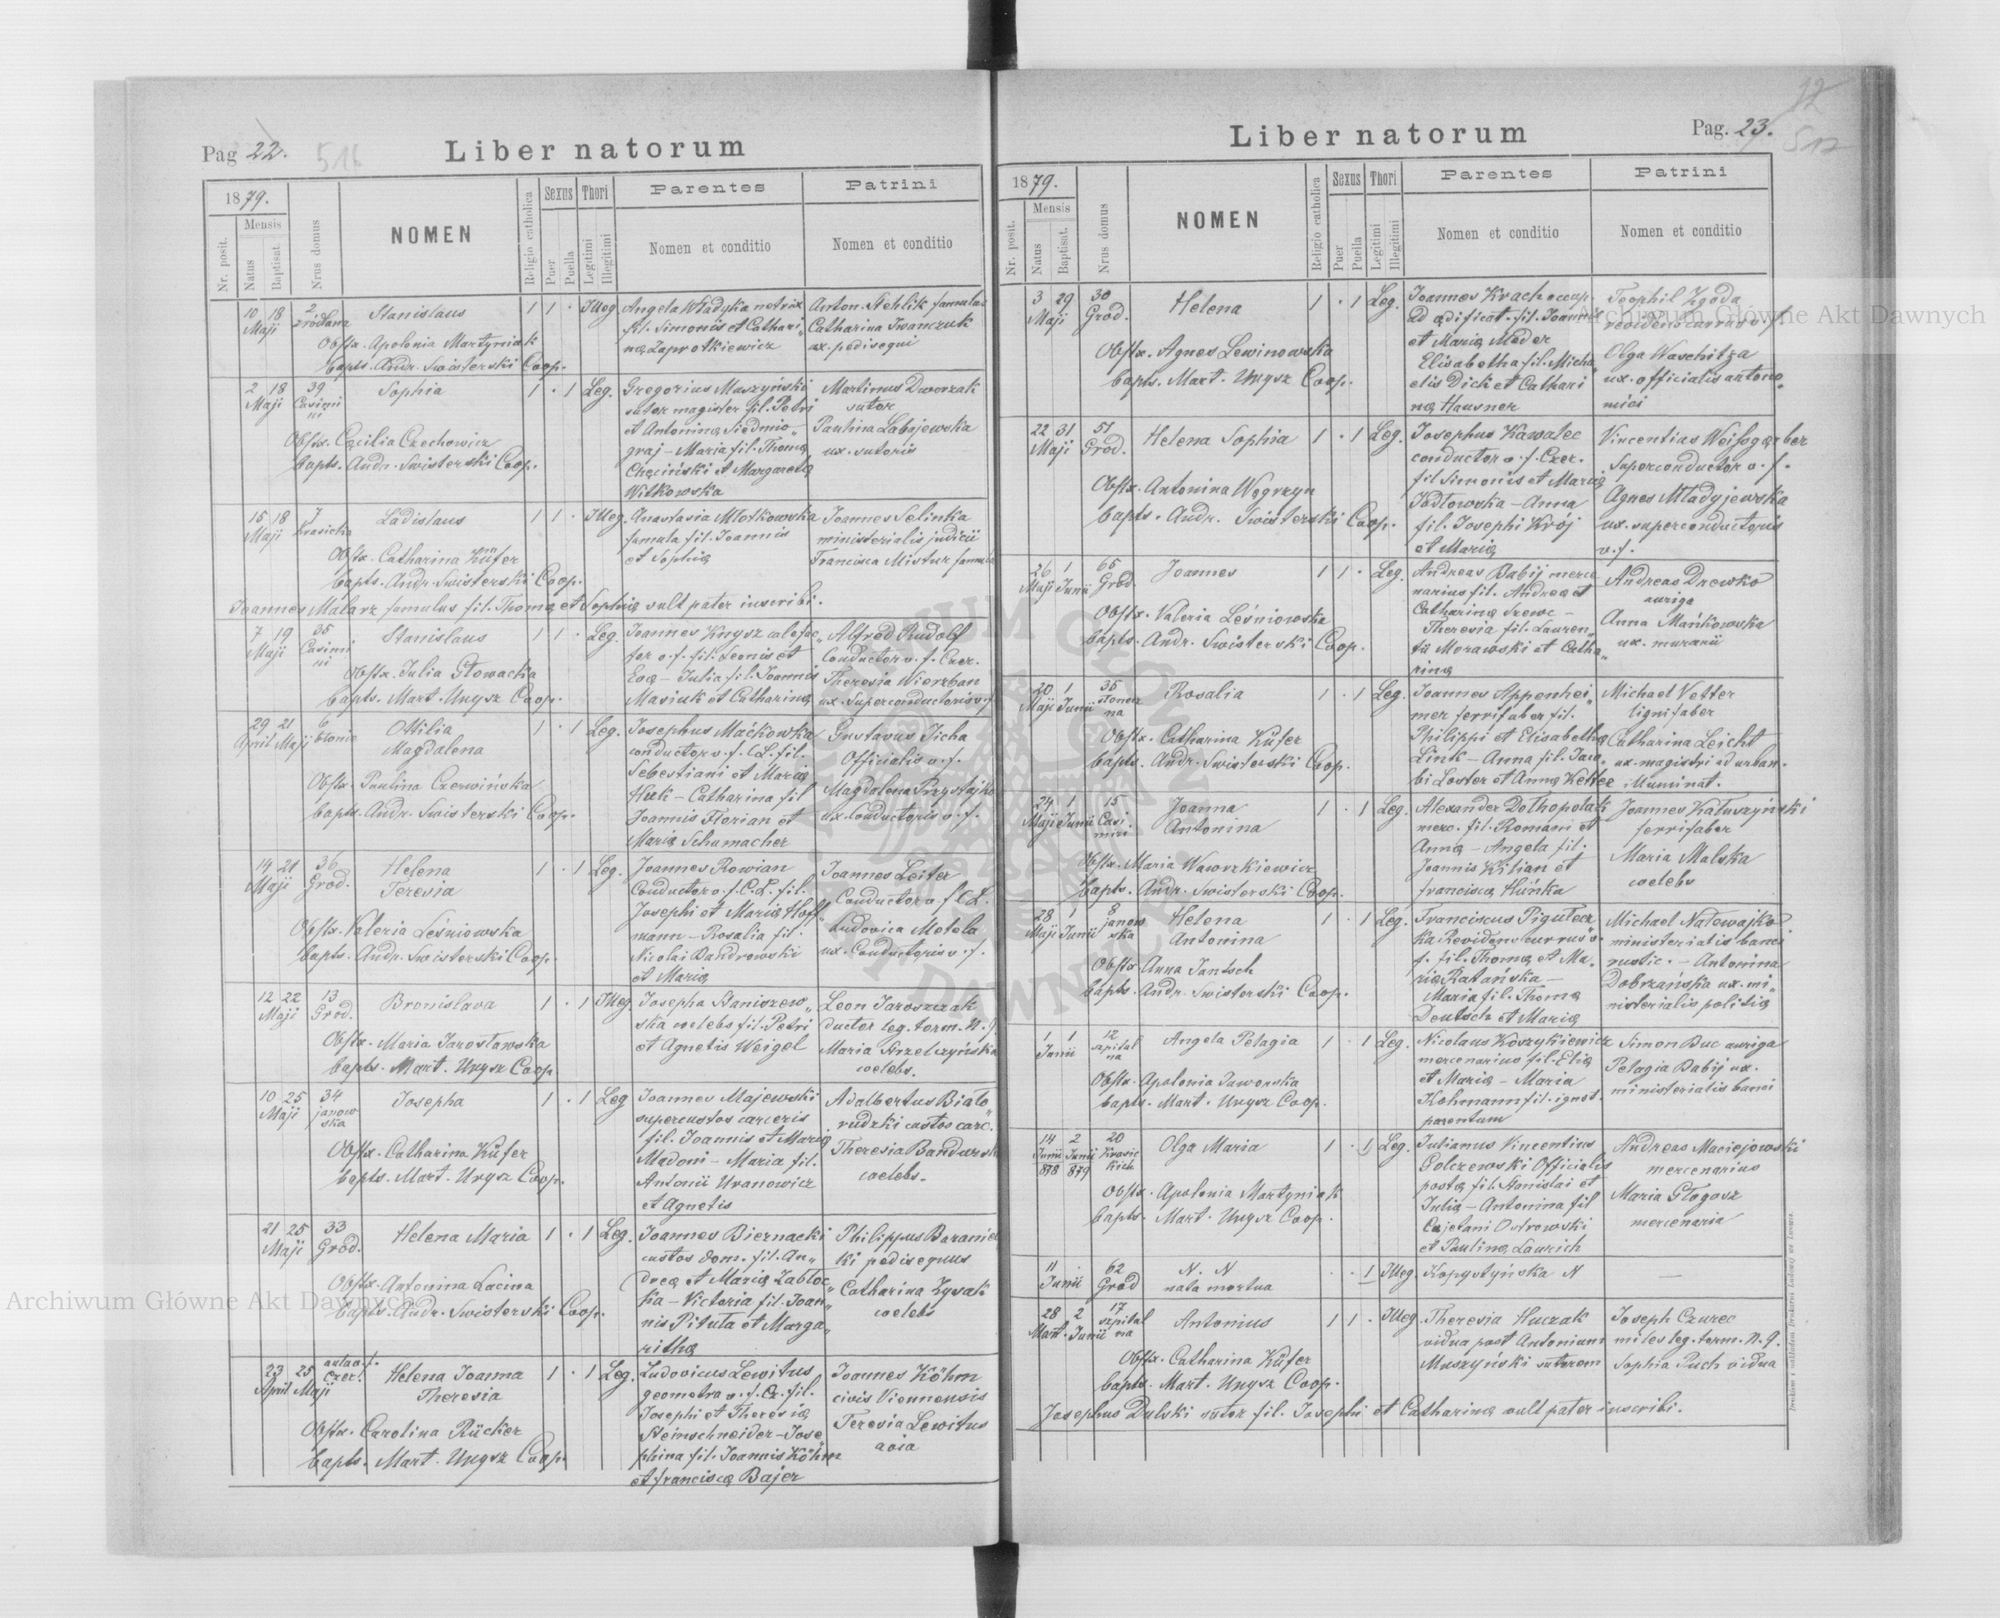 Pag 22.
516
Liber natorum
1879.
Nr. posit.
Mensis
Natus
Baptisat.
Nrus domus
NOMEN
Religio catholica
Sexus
Puer
Puella
Thori
Legitimi
Illegitimi
Parentes
Nomen et conditio
Patrini
Nomen et conditio
10 18 Maji
2 źródlana
Stanislaus
1 1 · Illeg.
Obstx. Apolonia Martyniak
bapts. Andr. Swisterski Coop.
Angela Władyka netrix
fil. Simonis et Cathari„
næ Zaprotkiewicz
Anton. Stehlik famulus
Catharina Iwanczuk
ux. pedisequi
2 18 Maji
39 Casimi
ri
Sophia
1 · 1 Leg.
Obstx. Cæcilia Czechowicz
bapts. Andr. Swisterski Coop.
Gregorius Muszyński
sutor magister fil. Petri
et Antoninæ Siedmio„
graj – Maria fil. Thomæ
Chęciński et Margaretæ
Witkowska
Martinus Dworzak
sutor
Paulina Labajewska
ux. sutoris
15 18 Maji
7 Krasicka
Ladislaus
1 1 · Illeg.
Obstx. Catharina Küfer
bapts. Andr. Swisterski Coop.
Anastasia Młotkowska
famula fil. Joannis
et Sophiæ
Joannes Selinka
ministerialis judicii
Francisca Mistur famula
Joannes Malarz famulus fil. Thomæ et Sophiæ vult pater inscribi.
7 19 Maji
35 Casimi
ri
Stanislaus
1 1 · Leg.
Obstx. Julia Głowacka
bapts. Mart. Ungsz Coop.
Joannes Knysz calefac„
tor v. f. fil. Leonis et
Evæ – Julia fil. Joannis
Masiuk et Catharinæ
Alfred Rudolf
Conductor v. f. Czer.
Theresia Wierzban
ux. Superconductoris v. f.
29 21
April Maji
6 błonie
Ottilia
Magdalena
1 · 1 Leg.
Obstx. Paulina Czerwińska
bapts. Andr. Swisterski Coop.
Josephus Maćkowska
conductor v. f. C. L. fil.
Sebestiani et Mariæ
Huk – Catharina fil
Joannis Florian et
Mariæ Schumacher
Gustavus Jicha
Officialis v. f.
Magdalena Przystajko
ux. Conductoris v. f.
14 21 Maji
36 Grod.
Helena
Teresia
1 · 1 Leg.
Obstx. Valeria Leśniowska
bapts. Andr. Swisterski Coop.
Joannes Rowian
Conductor v. f. C. L. fil.
Josephi et Mariæ Hoff„
mann – Rosalia fil.
Nicolai Bandrowski
et Mariæ
Joannes Leiter
Conductor v. f. C. L.
Ludovica Motola
ux. Conductoris v. f.
12 22 Maji
13 Grod.
Bronislava
1 · 1 Illeg.
Obstx. Maria Jarosławska
bapts. Mart. Ungsz Coop.
Josepha Staniszew„
ska coelebs fil. Petri
et Agnetis Weigel
Leon Jaroszczak
ductor leg. torm. N. 9.
Maria Strzelczyńska
coelebs.
10 25 Maji
34 janow
ska
Josepha
1 · 1 Leg
Obstx. Catharina Küfer
bapts. Mart. Ungsz Coop.
Joannes Majewski
supercustos carceris
fil. Joannis et Mariæ
Madoni – Maria fil.
Antonii Uranowicz
et Agnetis
Adalbertus Biało„
rudzki custos carc.
Theresia Bandurska
coelebs.
21 25 Maji
33 Grod.
Helena Maria
1 · 1 Leg.
Obstx. Antonina Lacina
bapts. Andr. Swisterski Coop.
Joannes Biernacki
custos dom. fil. An„
dreæ et Mariæ Zabłoc„
ka – Victoria fil. Joan„
nis Pituła et Marga„
rithæ
Philippus Baranic
ki pedisequus
Catharina Zysak
coelebs
23 25
April Maji
aulao. f.
Czer.
Helena Joanna
Theresia
1 · 1 Leg.
Obstx. Carolina Rücker
bapts. Mart. Ungsz Coop.
Ludovicus Lewitus
geometra v. f. Cz. fil.
Josephi et Theresiæ
Steinschneider – Jose„
phina fil. Joannis Köhm
et Franciscæ Bajer
Joannes Köhm
civis Viennensis
Teresia Lewitus
avia
Pag. 23.
Liber natorum
1879.
Nr. posit.
Mensis
Natus
Baptisat.
Nrus domus
NOMEN
Religio catholica
Sexus
Puer
Puella
Thori
Legitimi
Illegitimi
Parentes
Nomen et conditio
Patrini
Nomen et conditio
3 29 Maji
30 Grod.
Helena
1 · 1 Leg.
Obstx. Agnes Lewinowska
bapts. Mart. Ungsz Coop.
Joannes Krach occup.
ad ædificat. fil. Joannis
et Mariæ Meder
Elisabetha fil. Micha„
elis Dick et Cathari
næ Hausner
Teophil Zgoda
revidens currus v. f.
Olga Waschitza
ux. officialis autono„
mici
22 31 Maji
57 Grod.
Helena Sophia
1 · 1 Leg.
Obstx. Antonina Węgrzyn
bapts. Andr. Swisterski Coop.
Josephus Kawalec
conductor v. f. Czer.
fil Simonis et Mariæ
Jodłowska – Anna
fil. Josephi Krój
et Mariæ
Vincentius Weisgærber
Superconductor v. f.
Agnes Mładyjewska
ux. superconductoris
v. f.
26 1
Maji Junii
65 Grod.
Joannes
1 1 · Leg.
Obstx. Valeria Leśniowska
bapts. Andr. Swisterski Coop.
Andreas Babij merce
narius fil. Andreæ et
Catharinæ Szewc –
Theresia fil. Lauren„
tii Morawski et Catha„
rinæ
Andreas Drewko
auriga
Anna Mańkowska
ux. murarii
20 1
Maji Junii
35
na
Rosalia
1 · 1 Leg.
Obstx. Catharina Küfer
bapts. Andr. Swisterski Coop.
Joannes Appenhei„
mer ferrifaber fil.
Philippi et Elisabethæ
Link – Anna fil. Jaco„
bi Loster et Annæ Ketter
Michael Vetter
lignifaber
Catharina Leicht
ux. magistri ad urban.
illuminat.
24 1
Maji Junii
15 Casi
miri
Joanna
Antonina
1 · 1 Leg.
Obstx. Maria Wawrzkiewicz
bapts. Andr. Swisterski Coop.
Alexander Dothopolak
merc. fil. Romani et
Annæ – Angela fil.
Joannis Kilian et
Franciscæ Huńka
Joannes Kałuszyński
ferrifaber
Maria Malska
coelebs
28 1
Maji Junii
8 janow
ska
Helena
Antonina
1 · 1 Leg.
Obstx. Anna Jantsch
bapts. Andr. Swisterski Coop.
Franciscus Pigułecz
ka Revidens currus v.
f. fil. Thomæ et Ma„
riæ Ratańska –
Maria fil. Thomæ
Deutsch et Mariæ
Michael Nalewajko
ministerialis banci
rustic. – Antonina
Dobrzańska ux. mi„
nisterialis politiæ
1 1
Junii
12 szpital
na
Angela Pelagia
1 · 1 Leg.
Obstx. Apolonia Jaworska
bapts. Mart. Ungsz Coop.
Nicolaus Koszykiewicz
mercenarius fil. Eliæ
et Mariæ – Maria
Kohmann fil. ignot.
parentum
Simon Buc auriga
Pelagia Babij ux.
ministerialis banci
14 2
Junii Junii
878 879
20 Krasic
kich
Olga Maria
1 · 1 Leg.
Obstx. Apolonia Martyniak
bapts. Mart. Ungsz Coop.
Julianus Vincentius
Golczewski Officialis
postæ fil. Stanislai et
Juliæ – Antonina fil
Cajetani Ostrowski
et Paulinæ Laurich
Andreas Maciejowski
mercenarius
Maria Głogosz
mercenaria
11 ·
Junii
62 Grod
N. N
nata mortua
· · 1 Illeg.
Kopystyńska N
—
28 2
Mart. Junii
17 szpital
na
Antonius
1 1 · Illeg.
Obstx. Catharina Küfer
bapts. Mart. Ungsz Coop.
Theresia Huczak
vidua post Antonium
Muszyński sutorem
Joseph Czurec
miles leg. torm. N. 9.
Sophia Puch vidua
Josephus Dulski sutor fil. Josephi et Catharinæ vult pater inscribi.
Archiwum Główne Akt Dawnych
Archiwum Główne Akt Dawnych